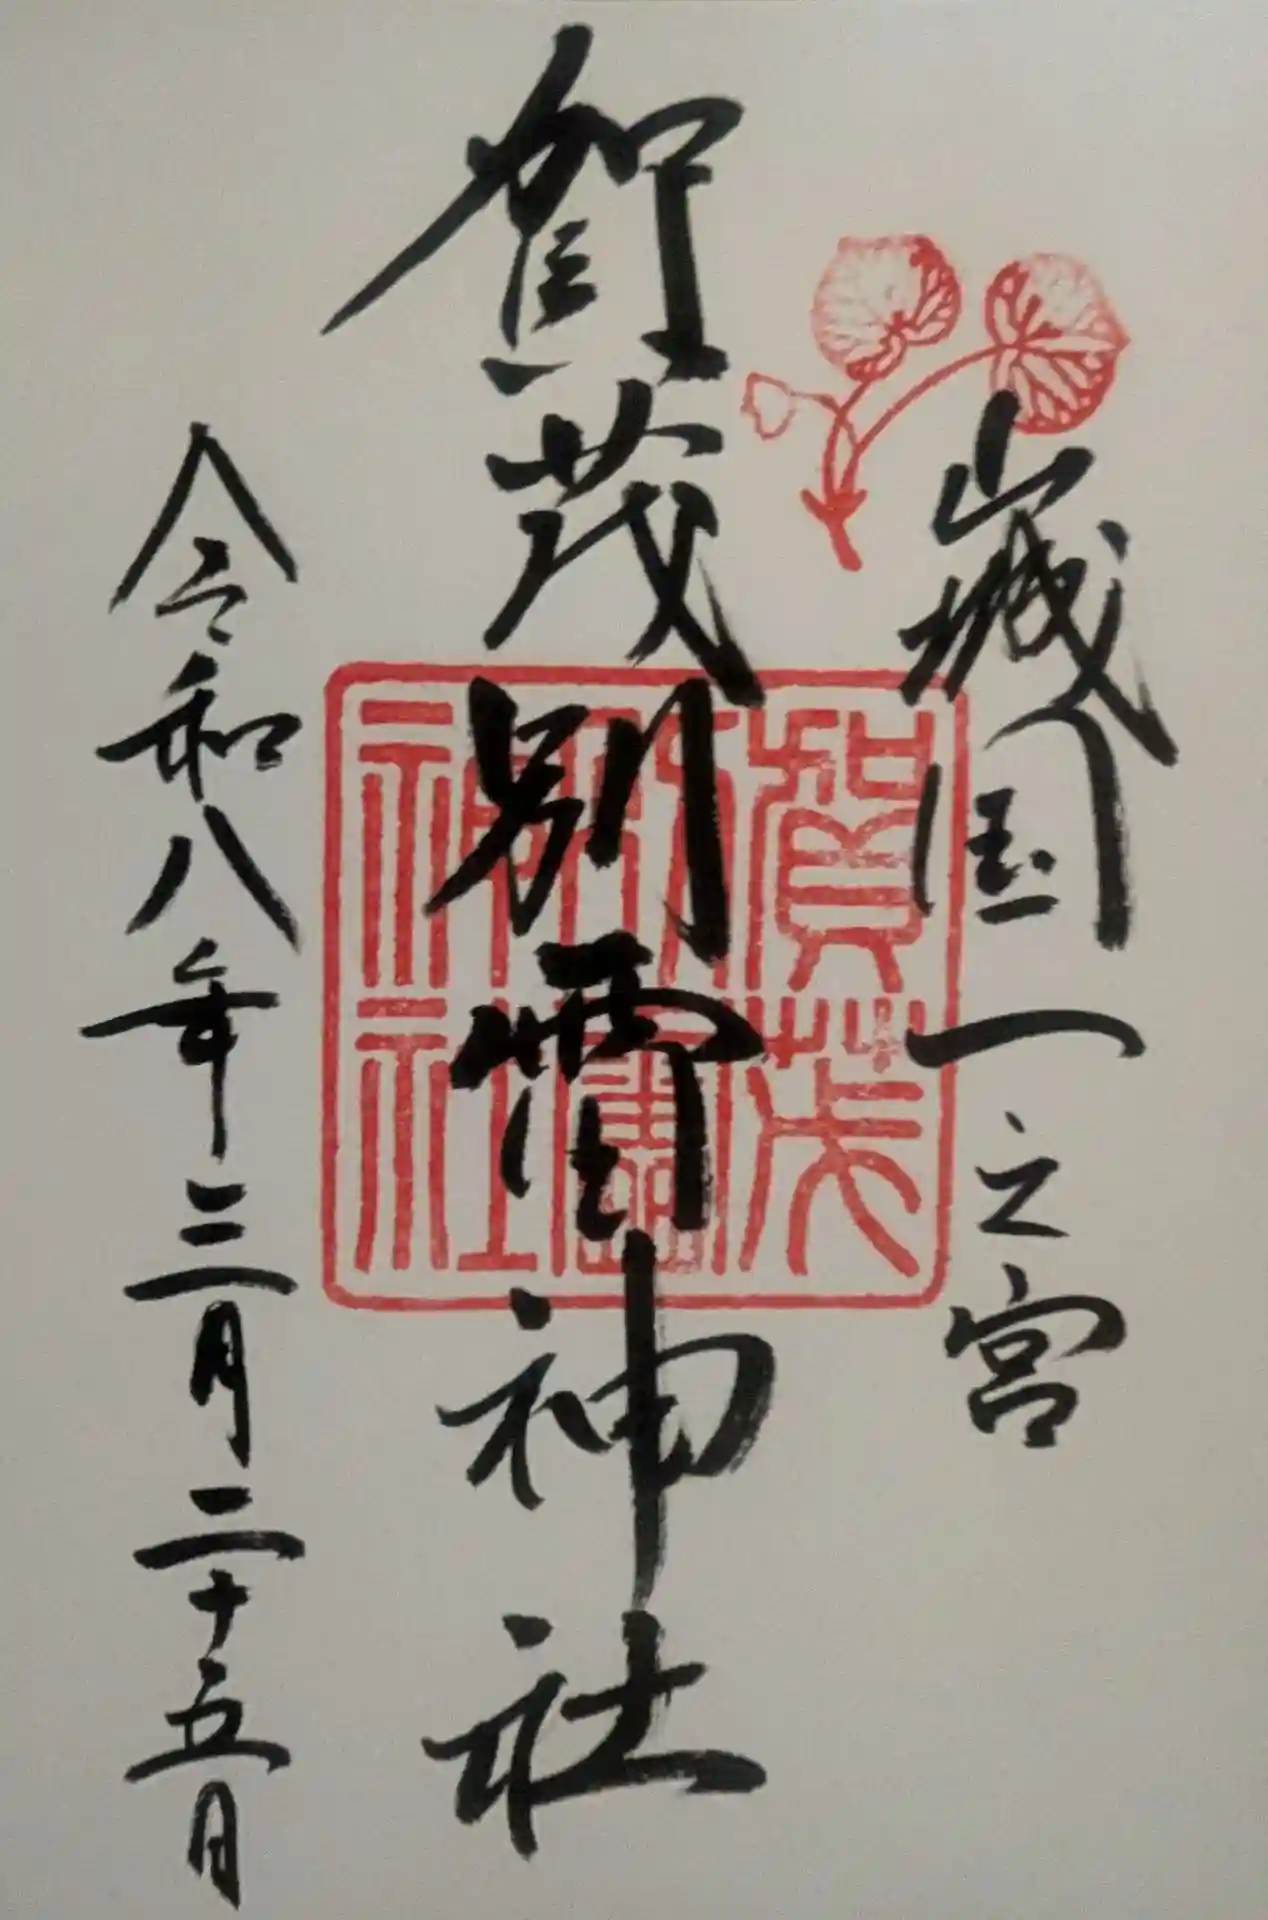 山城国一之宮
賀茂別雷神社
令和八年三月二十五日
賀茂
別雷
神社